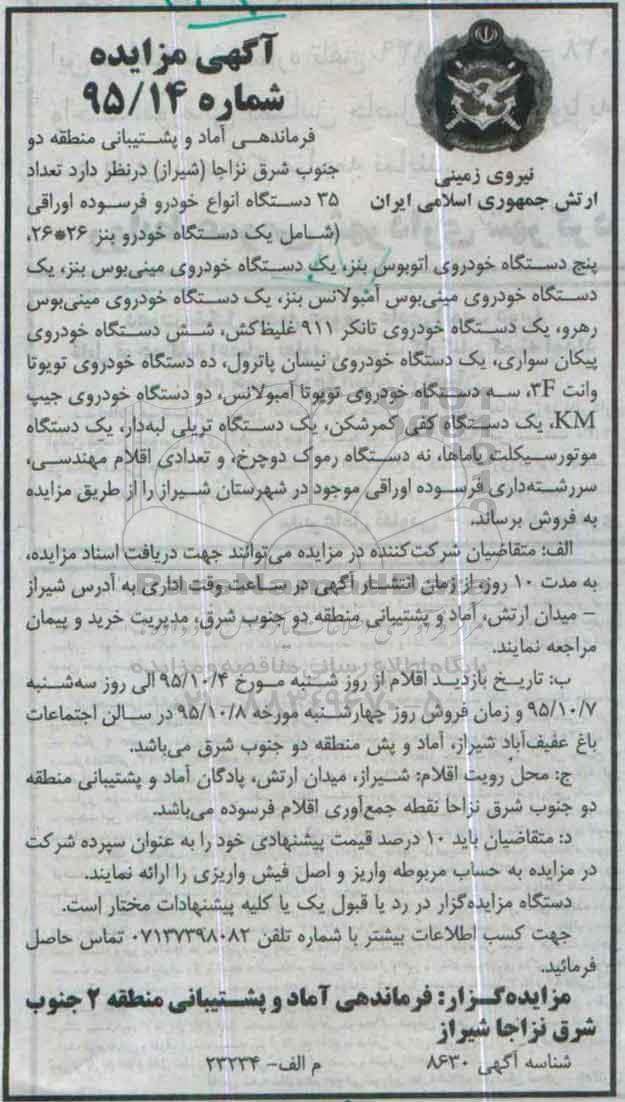 آگهی مزایده
شماره ۹۵/۱۴
نیروی زمینی
ارتش جمهوری اسلامی ایران
فرماندهی آماد و پشتیبانی منطقه دو
جنوب شرق نزاجا (شیراز) درنظر دارد تعداد
۳۵ دستگاه انواع خودرو فرسوده اوراقی
(شامل یک دستگاه خودرو بنز ۲۶*۲۶،
پنج دستگاه خودروی اتوبوس بنز، یک دستگاه خودروی مینی‌بوس بنز، یک
دستگاه خودروی مینی‌بوس آمبولانس بنز، یک دستگاه خودروی مینی‌بوس
رهرو، یک دستگاه خودروی تانکر ۹۱۱ غلیظ‌کش، شش دستگاه خودروی
پیکان سواری، یک دستگاه خودروی نیسان پاترول، ده دستگاه خودروی تویوتا
وانت ۳F، سه دستگاه خودروی تویوتا آمبولانس، دو دستگاه خودروی جیپ
KM، یک دستگاه کفی کمرشکن، یک دستگاه تریلی لبه‌دار، یک دستگاه
موتورسیکلت یاماها، نه دستگاه رموک دوچرخ، و تعدادی اقلام مهندسی،
سررشته‌داری فرسوده اوراقی موجود در شهرستان شیراز را از طریق مزایده
به فروش برساند.
الف: متقاضیان شرکت‌کننده در مزایده می‌توانند جهت دریافت اسناد مزایده،
به مدت ۱۰ روز، از زمان انتشار آگهی در ساعت وقت اداری به آدرس شیراز
– میدان ارتش، آماد و پشتیبانی منطقه دو جنوب شرق، مدیریت خرید و پیمان
مراجعه نمایند.
ب: تاریخ بازدید اقلام از روز شنبه مورخ ۹۵/۱۰/۴ الی روز سه‌شنبه
۹۵/۱۰/۷ و زمان فروش روز چهارشنبه مورخه ۹۵/۱۰/۸ در سالن اجتماعات
باغ عفیف‌آباد شیراز، آماد و پش منطقه دو جنوب شرق می‌باشد.
ج: محل رویت اقلام: شیراز، میدان ارتش، پادگان آماد و پشتیبانی منطقه
دو جنوب شرق نزاجا نقطه جمع‌آوری اقلام فرسوده می‌باشد.
د: متقاضیان باید ۱۰ درصد قیمت پیشنهادی خود را به عنوان سپرده شرکت
در مزایده به حساب مربوطه واریز و اصل فیش واریزی را ارائه نمایند.
دستگاه مزایده‌گزار در رد یا قبول یک یا کلیه پیشنهادات مختار است.
جهت کسب اطلاعات بیشتر با شماره تلفن ۰۷۱۳۷۳۹۸۰۸۲ تماس حاصل
فرمائید.
مزایده‌گزار: فرماندهی آماد و پشتیبانی منطقه ۲ جنوب
شرق نزاجا شیراز
شناسه آگهی ۸۶۳۰ م الف- ۲۳۲۳۴